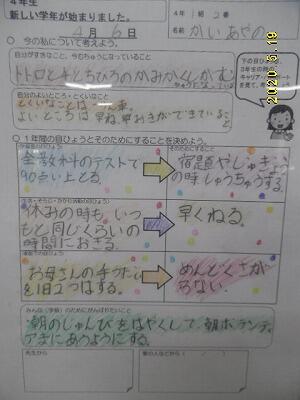 4年生
新しい学年が始まりました。
4月6日
4年1組2番
名前 かい あやの
2020 5.19
○ 今の私について考えよう。
自分がすきなこと、今むちゅうになっていること
自分のよいところ・とくいなこと
とくいなことは
よい所は早ね早おきができている
こと
下の目ひょう
3年生の時の
キャリア・パスポート
を見て、考え
○ 1年間の目ひょうとそのためにすることを決めよう。
そのためにすること
全教科のテストで
90点い上とる。
宿題やじゅぎょう
の時しゅうちゅうする。
休みの時も、いつ
もと同じくらいの
時間におきる。
早くねる。
お母さんの手つだい
を1日2つはする。
めんどくさが
らない。
みんな(学級)のためにがんばりたいこと
朝のじゅんびをはやくして、朝ボランティ
アまにあうようにする。
先生から
家の人などから ( / )